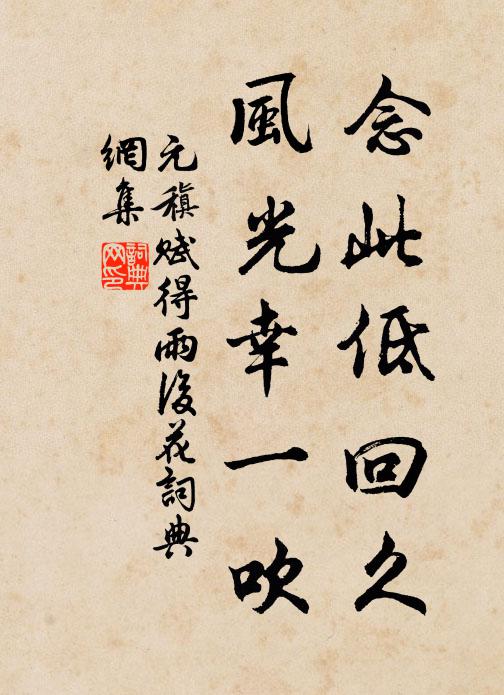 念此低回久
風光幸一吹
元稹賦得雨後花詞典
網集
詞典網印